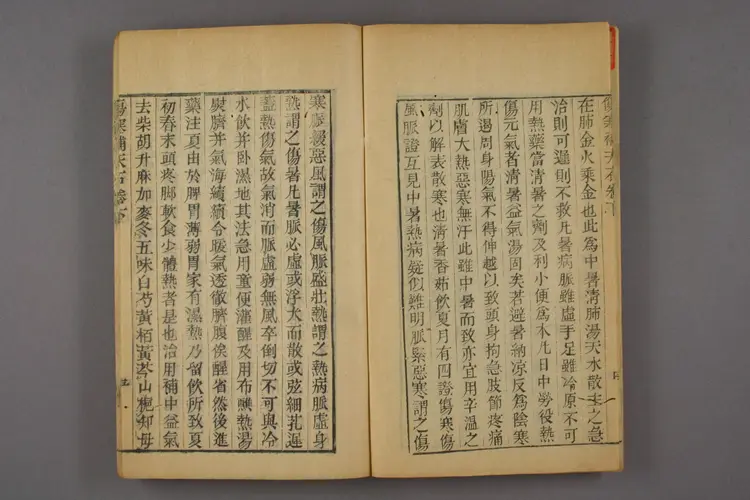 傷寒補天石卷下
在肺金火乘金也此為中暑清肺湯天水散末之急
治則可遲則不救凡暑病脈雖虛手足雖冷原不可
用熱藥當清暑之劑及利小便為本凡日中勞役熱
傷元氣者清暑益氣湯固矣若避暑納凉反為陰寒
所遏周身陽氣不得伸越以致頭身拘急肢節疼痛
肌膚大熱惡寒無汗此雖中暑而致亦宜用辛溫之
劑以解表散寒也清暑香茹飲夏月有四證傷寒傷
風脈證互見中暑熱病疑似難明脈緊惡寒謂之傷
寒脈緩惡風謂之傷風脈盛壯熱謂之熱病脈虛身
熱謂之傷暑凡暑脈必虛或浮大而散或弦細芤遲
蓋熱傷氣故氣消而脈虛弱無風卒倒切不可與冷
水飲并臥濕地其法急用童便灌醒及用布蘸熱湯
熨臍并氣海續續令暖氣透徹臍腹俟醒省然後進
藥注夏由於脾胃薄弱胃家有濕熱乃留飲所致夏
初春末頭疼脚軟食少體熱者是也治用補中益氣
去柴胡升麻加麥冬五味白芍黃栢黃芩山梔却母
傷寒補天石卷下